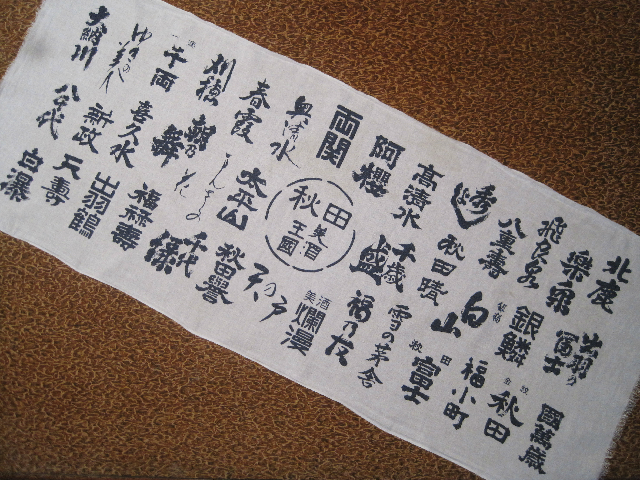 北鹿
出羽の冨士
國萬歳
飛良泉
銀鱗
秋田
八重壽
福小町
秀よし
秋田晴
白山
秋田富士
高清水
千歳盛
雪の茅舎
阿櫻
福乃友
両関
秋田
美酒
王國
美酒爛漫
奥清水
天の戸
春霞
太平山
秋田譽
刈穂
朝乃舞
まんさくの花
千代緑
千両
喜久水
福禄壽
ゆきの美人
新政
出羽鶴
大納川
八千代
天壽
白瀑